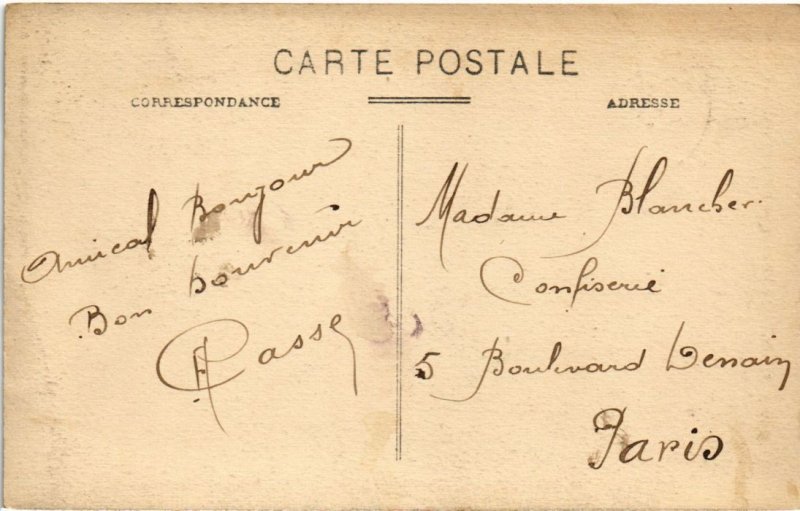 CARTE POSTALE
CORRESPONDANCE
ADRESSE
Amical Bonjour
Bon Souvenir
Madame Blancher
Confiserie
5 Boulevard Denain
Paris